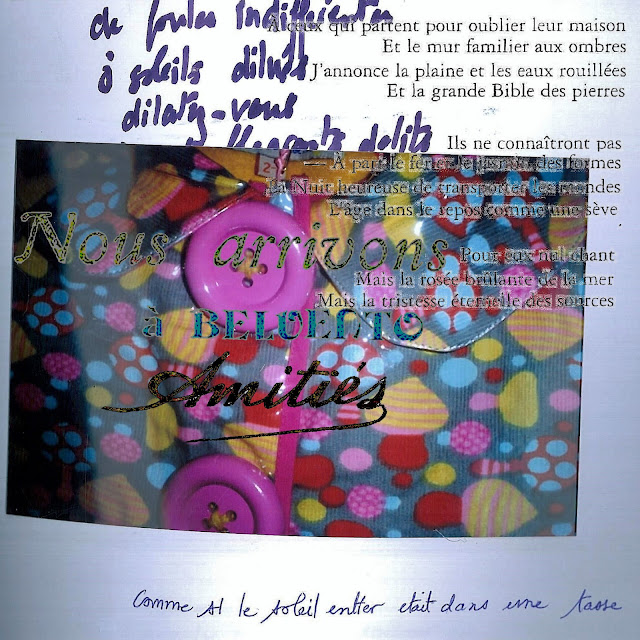 de foules indifférentes
ô soleils dilués
dilatez-vous
délits
À ceux qui partent pour oublier leur maison
Et le mur familier aux ombres
J'annonce la plaine et les eaux rouillées
Et la grande Bible des pierres
Ils ne connaîtront pas
— À part le fer et le jasmin des formes
La Nuit heureuse de transporter les mondes
L'âge dans le repos comme une sève
Pour eux nul chant
Mais la rosée brûlante de la mer
Mais la tristesse éternelle des sources
2
Nous arrivons
à BELVENTO
Amitiés
Comme si le soleil entier était dans une tasse